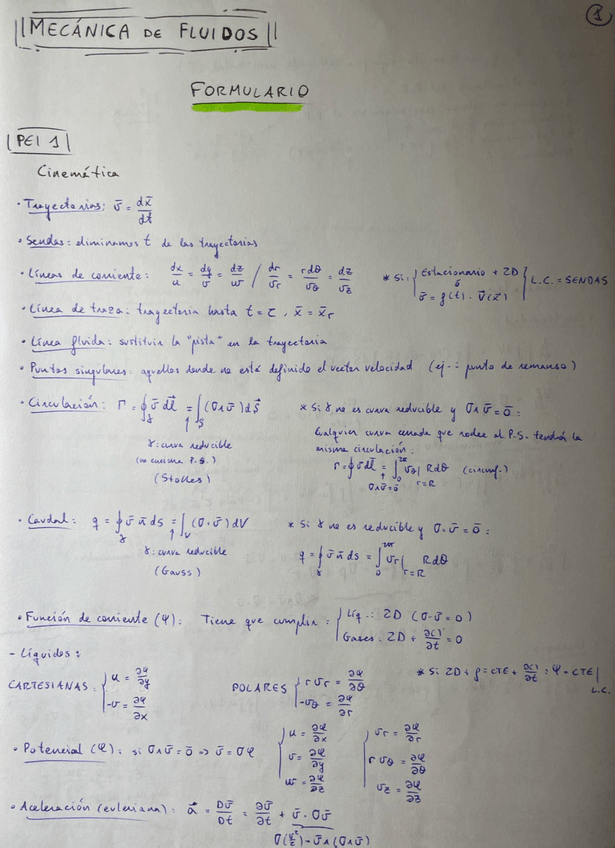 1
MECÁNICA DE FLUIDOS
FORMULARIO
PEI 1
Cinemática
· Trayectorias: v̄ = dx̄/dt
· Sendas: eliminamos t de las trayectorias
· Líneas de corriente: dx/u = dy/v = dz/w / dr/vr = rdθ/vθ = dz/vz * Si: { Estacionario + 2D ó v̄ = f(t) · V̄(x̄) } L.C. = SENDAS
· Línea de traza: trayectoria hasta t = τ, x̄ = x̄r
· Línea fluida: sustituir la "pista" en la trayectoria
· Puntos singulares: aquellos donde no está definido el vector velocidad (ej.: punto de remanso)
· Circulación: Γ = ∮γ v̄ dl̄ = ∫S (∇∧v̄) ds̄ * Si γ no es curva reducible y ∇∧v̄ = 0̄ :
Cualquier curva cerrada que rodee al P.S. tendrá la
γ: curva reducible misma circulación:
(no encierra P.S.) Γ = ∮ v̄ dl̄ = ∫0^2π vθ|r=R Rdθ (circunf.)
(Stokes) ∇∧v̄ = 0̄
· Caudal: q = ∮γ v̄ n̄ ds = ∫V (∇·v̄) dV * Si γ no es reducible y ∇·v̄ = 0̄ :
γ: curva reducible q = ∮γ v̄ n̄ ds = ∫0^2π vr|r=R Rdθ
(Gauss)
· Función de corriente (Ψ): Tiene que cumplir: { Líq.: 2D (∇·v̄ = 0)
Gases: 2D + ∂( )/∂t = 0
- Líquidos:
CARTESIANAS: { u = ∂Ψ/∂y POLARES { r vr = ∂Ψ/∂θ * Si 2D + ρ = CTE + ∂( )/∂t : Ψ = CTE| L.C.
-v = ∂Ψ/∂x -vθ = ∂Ψ/∂r
· Potencial (φ): si ∇∧v̄ = 0̄ => v̄ = ∇φ { u = ∂φ/∂x { vr = ∂φ/∂r
v = ∂φ/∂y r vθ = ∂φ/∂θ
w = ∂φ/∂z vz = ∂φ/∂z
· Aceleración (euleriana): a⃗ = Dv̄/Dt = ∂v̄/∂t + v̄ · ∇v̄
∇(v²/2) - v̄∧(∇∧v̄)